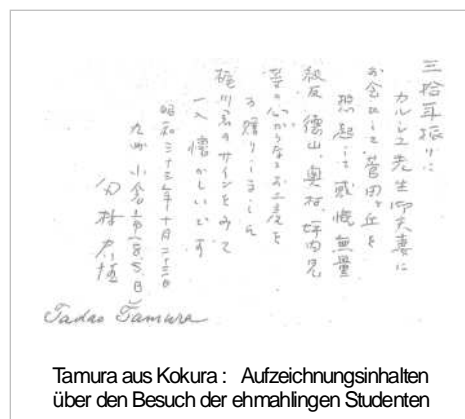 三拾年振りに
カルシュ先生御夫妻に
お会ひして菅田ヶ丘を
想起して感慨無量
級友、徳山、奥村、坪内兄
等の心からなるお土産を
お贈りしました
梶川君のサインをみて
一入懐かしいです
昭和三十三年十月二十三日
九州小倉市
田村
Tadao Tamura
Tamura aus Kokura : Aufzeichnungsinhalten
über den Besuch der ehmahlingen Studenten